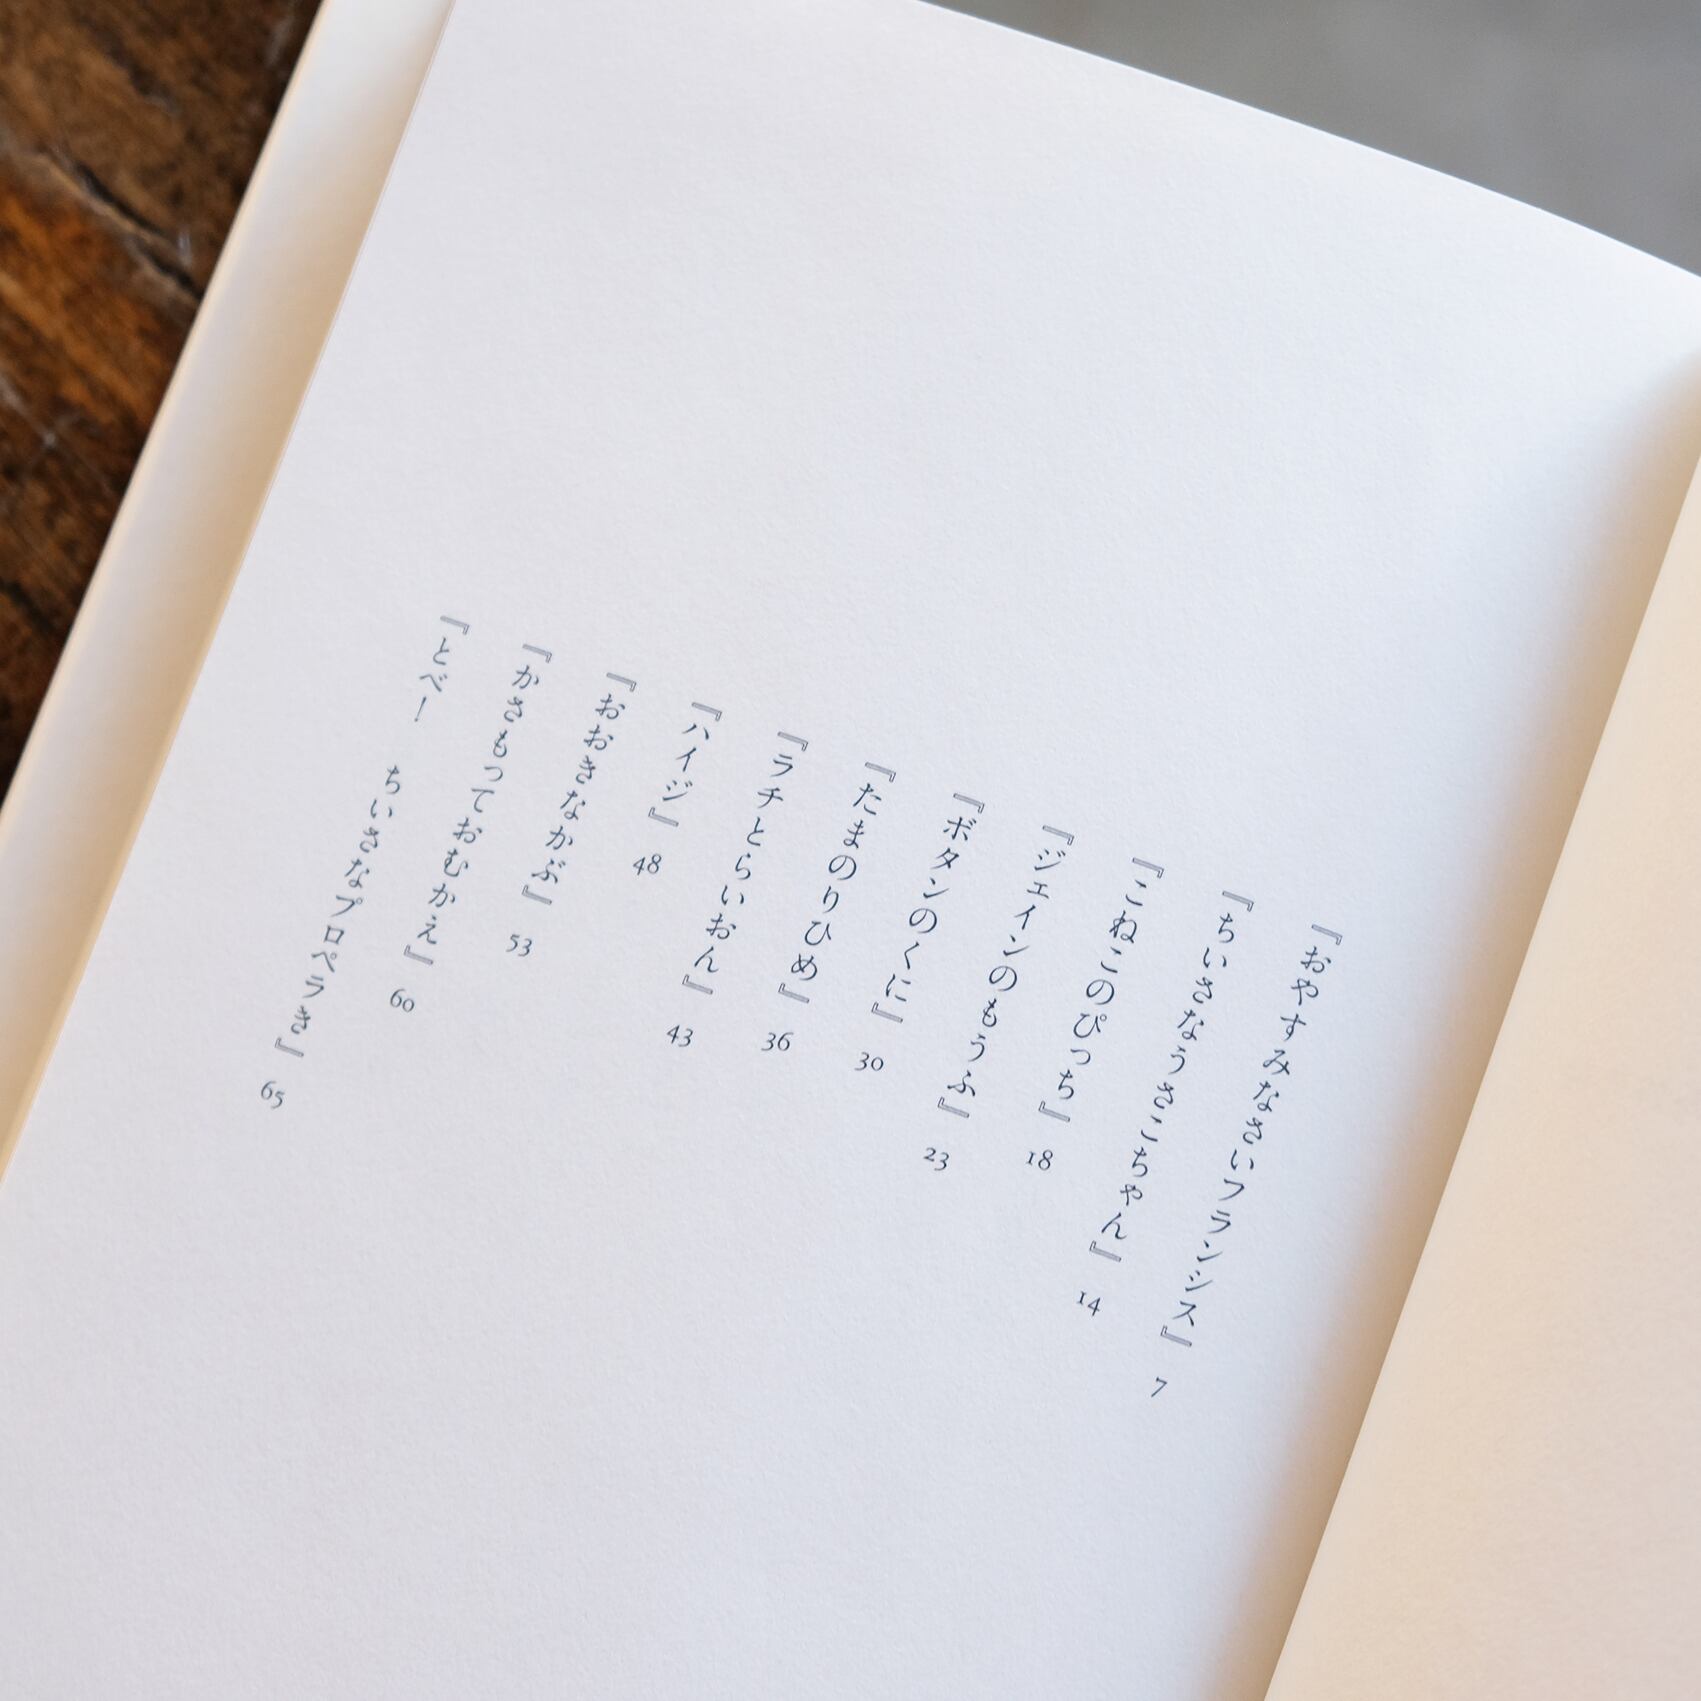 『おやすみなさいフランシス』 7
『ちいさなうさこちゃん』 14
『こねこのぴっち』 18
『ジェインのもうふ』 23
『ボタンのくに』 30
『たまのりひめ』 36
『ラチとらいおん』 43
『ハイジ』 48
『おおきなかぶ』 53
『かさもっておむかえ』 60
『とべ！ ちいさなプロペラき』 65